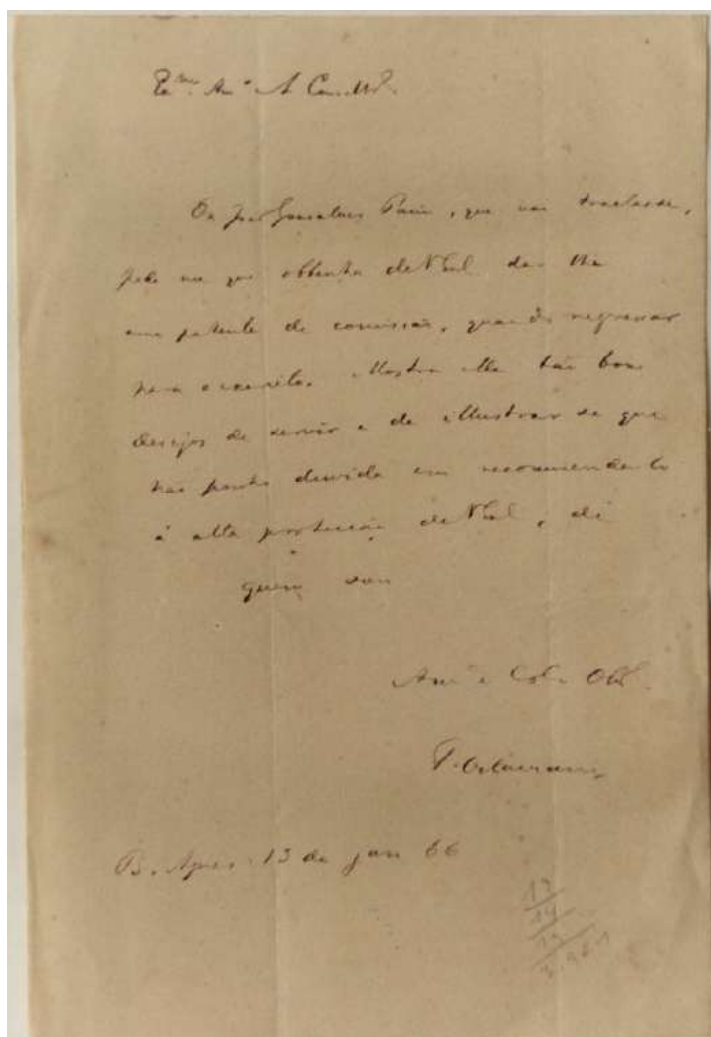 Ex.mo Am.o
Gonsalves, que vai
pede me que obtenha de V Ex.cia dar lhe
uma patente de comissão, quando regressar
para o exercito. Mostra elle tão bons
desejos de servir e de illustrar se que
não ponho duvida em recommendal o
á alta protecção de V Ex.cia, de
quem sou
Am.o e Col.a Ob.
F. Octaviano
B. Ayres. 13 de jan 66
13
14
13